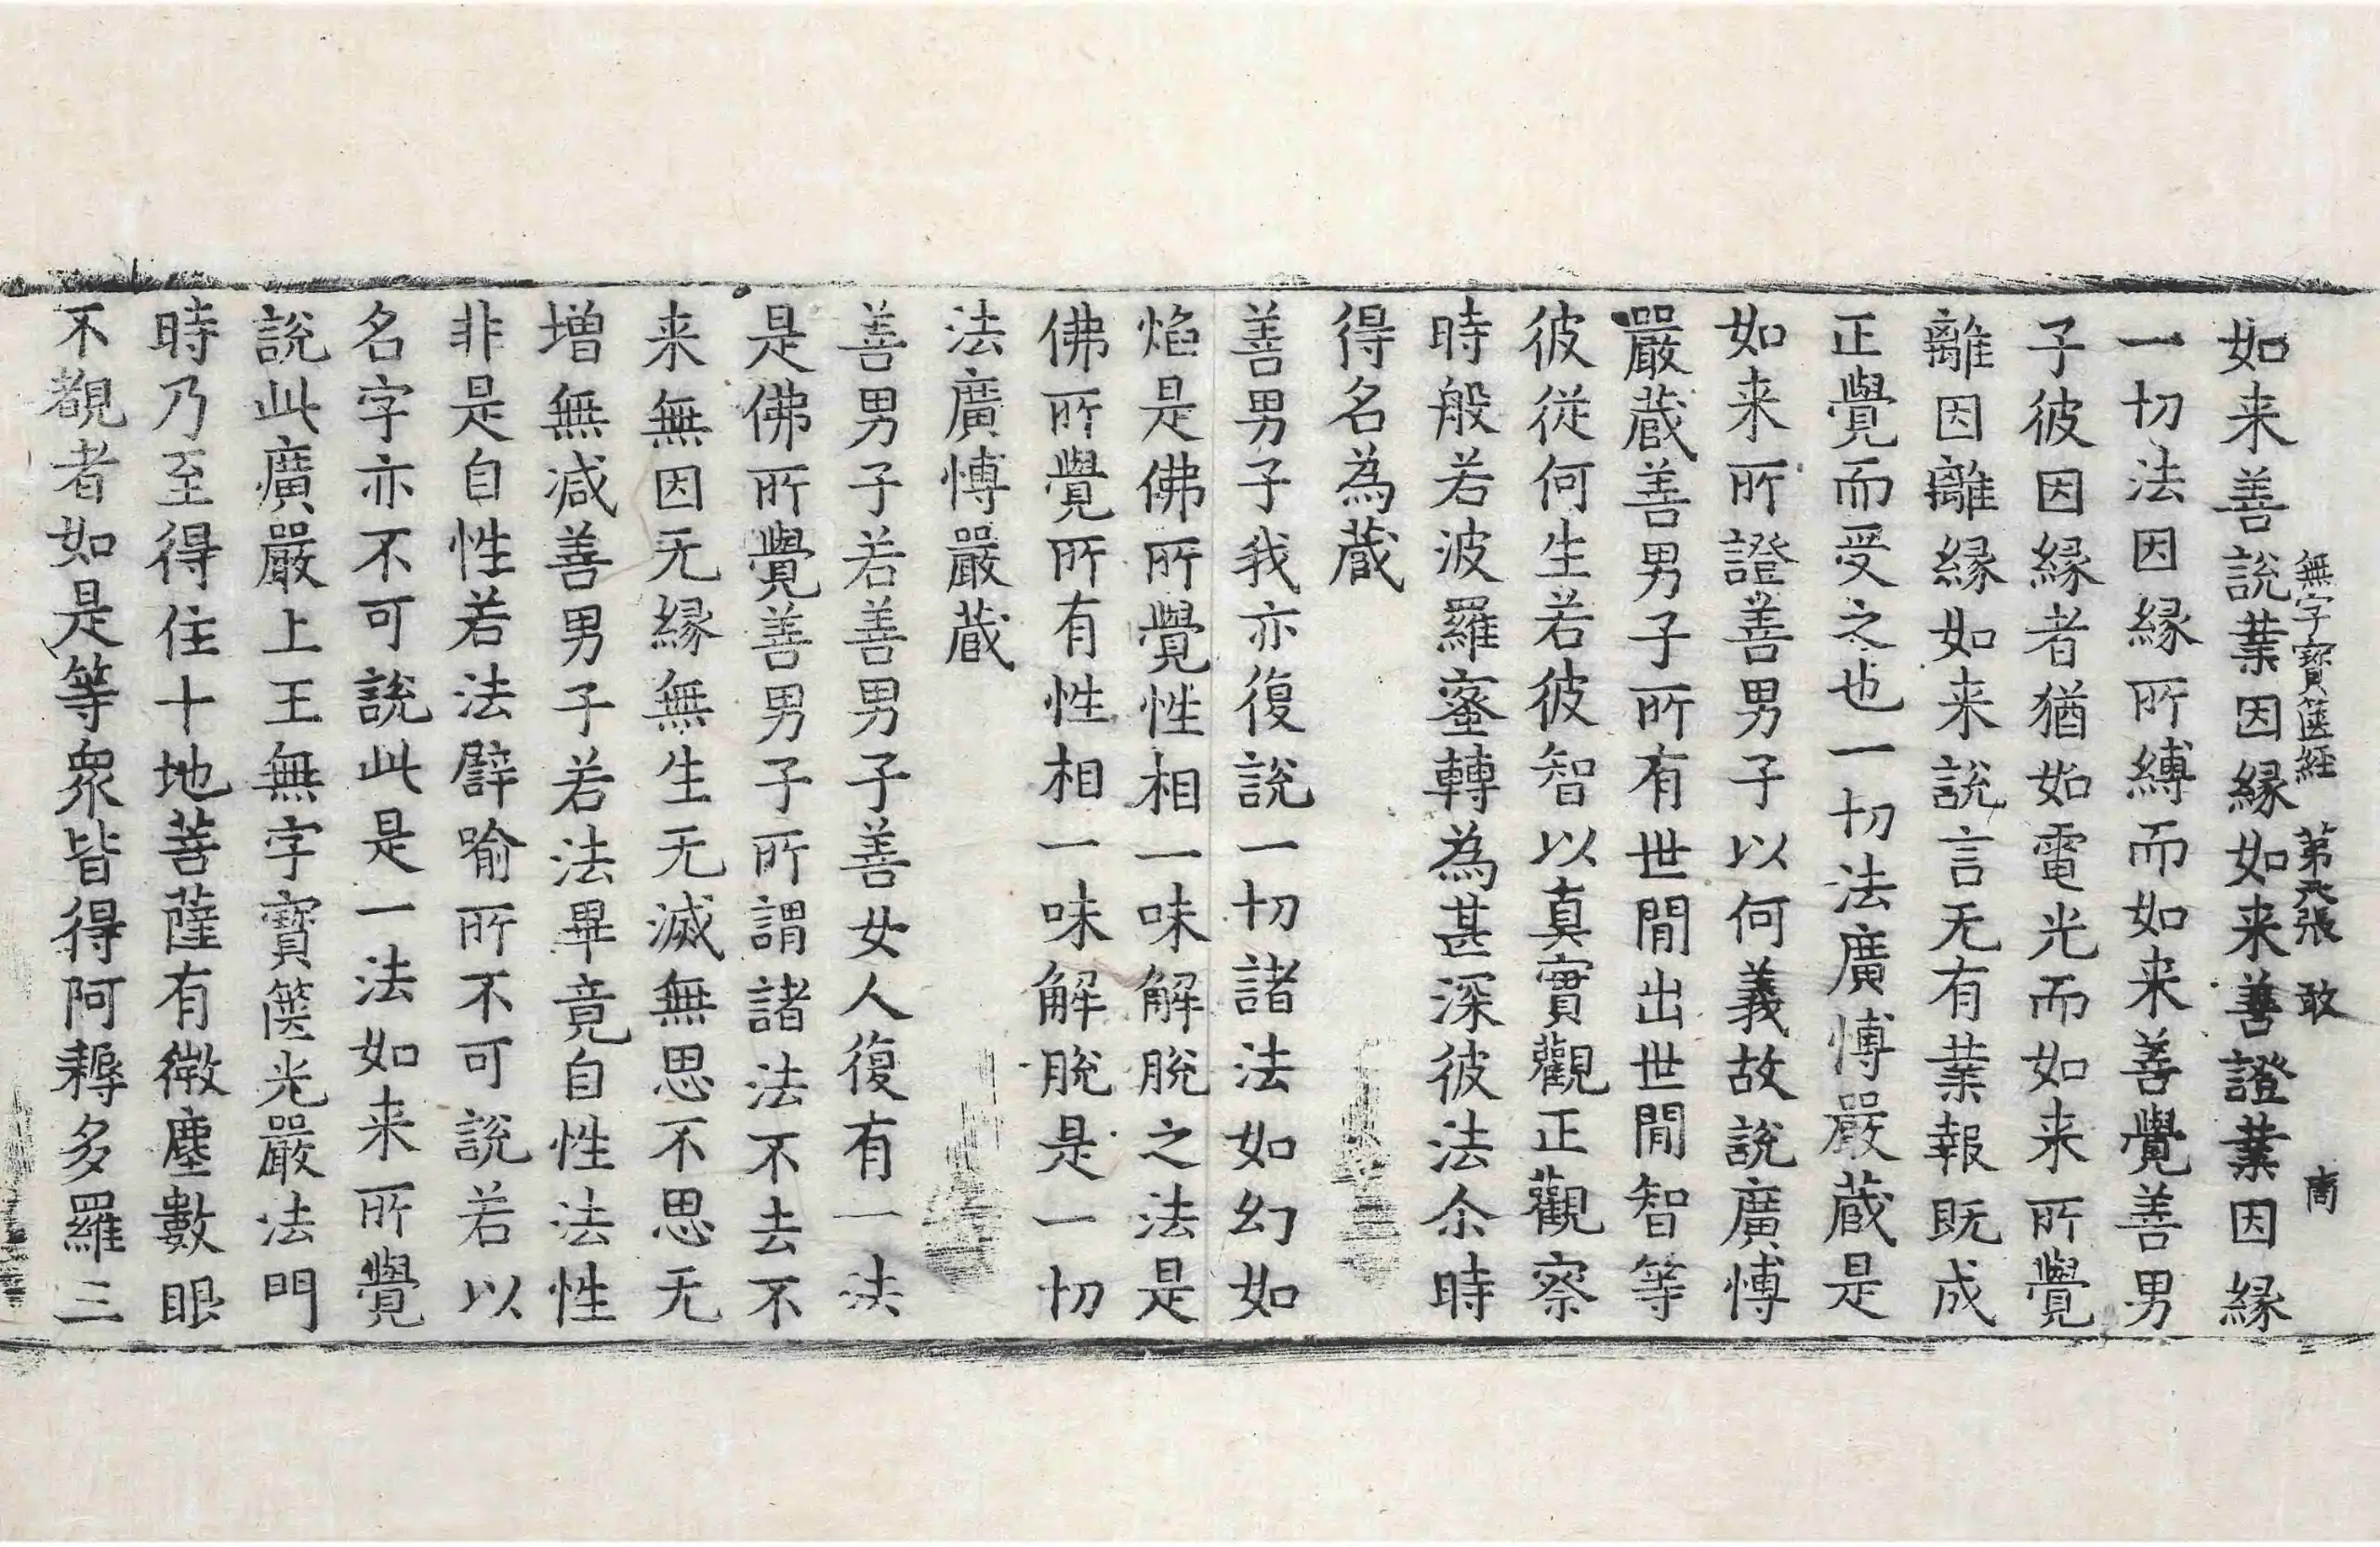 無字寶篋經 第八張 敢
如来善說業因縁如来善證業因縁
一切法因縁所縛而如来善覺善男
子彼因縁者猶如電光而如来所覺
離因離縁如来說言无有業報既成
正覺而受之也一切法廣愽嚴蔵是
如来所證善男子以何義故說廣愽
嚴蔵善男子所有世閒出世閒智等
彼從何生若彼智以真實觀正觀察
時般若波羅蜜轉為甚深彼法尒時
得名為蔵
善男子我亦復說一切諸法如幻如
焰是佛所覺性相一味解脫之法是
佛所覺所有性相一味解脫是一切
法廣愽嚴蔵
善男子若善男子善女人復有一法
是佛所覺善男子所謂諸法不去不
来無因无縁無生无滅無思不思无
増無減善男子若法畢竟自性法性
非是自性若法譬喻所不可說若以
名字亦不可說此是一法如来所覺
說此廣嚴上王無字寶篋光嚴法門
時乃至得住十地菩薩有微塵數眼
不覩者如是等衆皆得阿耨多羅三